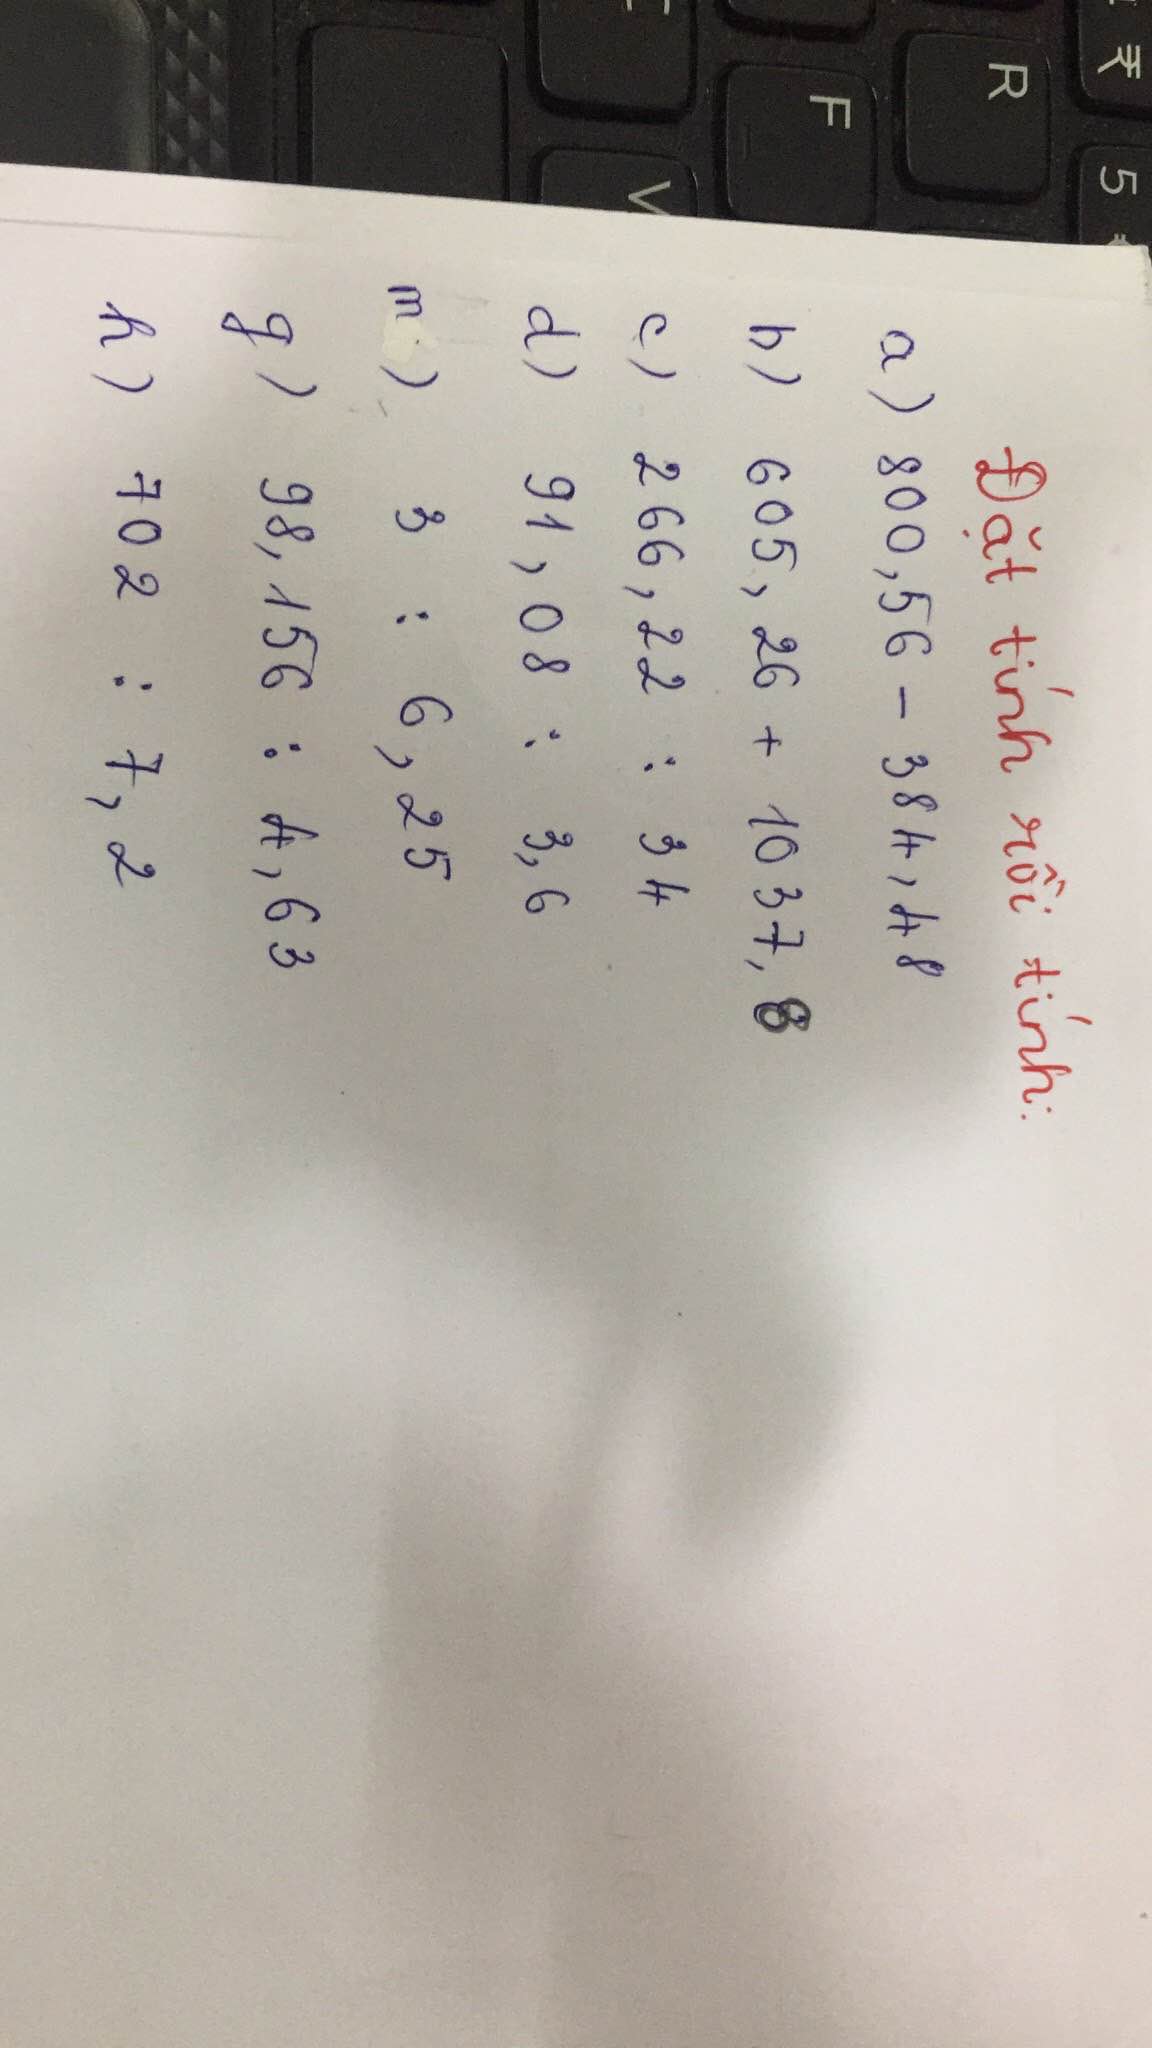 Đặt tính rồi tính:
a) 800,56 - 384,48
b) 605,26 + 1037,8
c) 266,22 : 34
d) 91,08 : 3,6
m) 3 : 6,25
g) 98,156 : 4,63
h) 702 : 7,2
₹
5
R
F
V